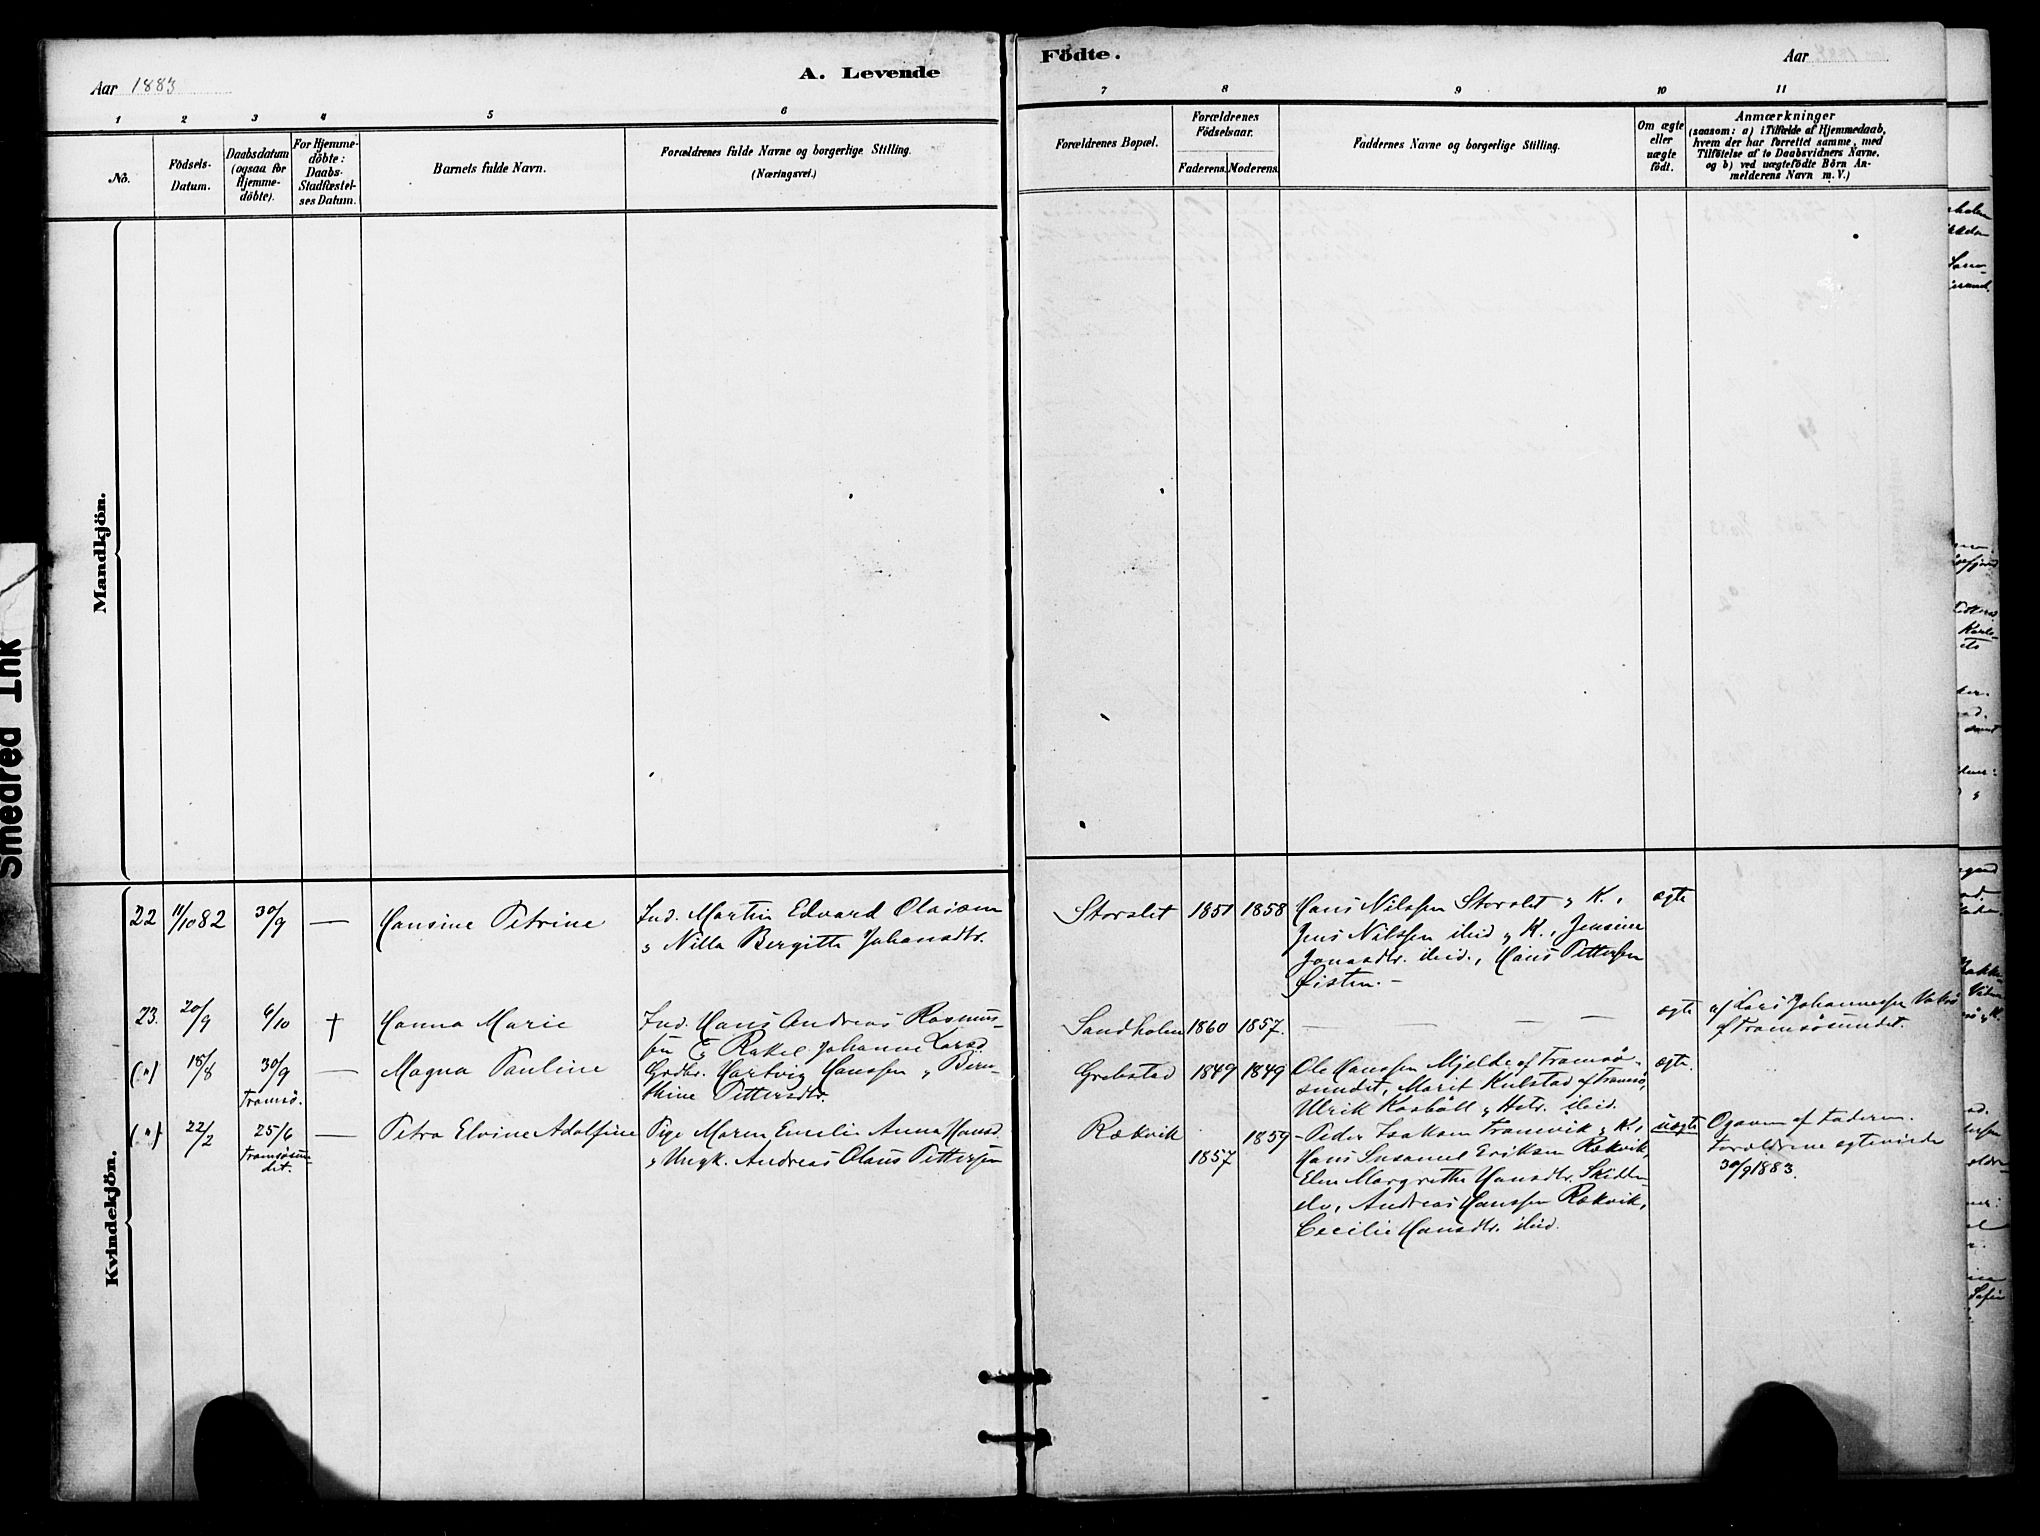 A. Levende
Födte.
Aar 1883
Aar
1 2 3 4 5 6
7 8 9 10 11
No.
Födsels-
Datum.
Daabsdatum
(ogsaa for
Hjemme-
döbte).
For Hjemme-
döbte:
Daabs-
Stadfæstel-
ses Datum.
Barnets fulde Navn.
Forældrenes fulde Navne og borgerlige Stilling.
(Næringsvei.)
Forældrenes Bopæl.
Forældrenes
Födselsaar.
Faderens.
Moderens.
Faddernes Navne og borgerlige Stilling.
Om ægte
eller
uægte
födt.
Anmærkninger
(saasom: a) i Tilfælde af Hjemmedaab,
hvem der har forrettet samme, med
Tilföielse af to Daabsvidners Navne,
og b) ved uægtefödte Börn An-
melderens Navn m. V.)
Mandkjön.
Kvindekjön.
Smedred Ink
22 11/10 82 30/9 — Hansine Petrine
Ind. Martin Edvard Olaisen
& Nilla Bergitta Johansdtr.
Storslet 1851 1858
Hans Nilssen Storslet & K.,
Jens Nilssen ibid & K., Jensine
Jonasdtr. ibid., Hans Pettersen
Øisten. —
ægte
23. 20/9 6/10 † Hanna Marie
Ind. Hans Andreas Rasmus-
sen & Rakel Johanne Larsd
Sandholm 1860 1857. — — — —
ægte
af Lars Johannessen
af Tromsøsundet.
(") 18/8 30/9 Tromsø. — Magna Pauline
Grdbr. Hartvig Hanssen & Bern-
thine Pettersdtr.
Grøbstad 1849 1849
Ole Hanssen Mjelde af Tromsø-
sundet, Marit Kulstad af Tromsø,
Ulrik Kosböll & Hstr. ibid.
ægte.
(") 22/2 25/6 Tromsøsun-
det. — Petra Elvine Adolfine
Pige Maren Emelie Anna Hansd
& Ungk. Andreas Olaus Pettersen
Rækvik 1857 1859
Peder Isaksen Tromvik & K.,
Hans Susamel Eriksen Rækvik,
Elen Margrethe Hansdtr. Skitten-
elv, Andreas Hanssen Rækvik,
Cecilie Hansdtr. ibid.
uægte
Opgaven af Faderen.
Forældrene ægteviede
30/9 1883.